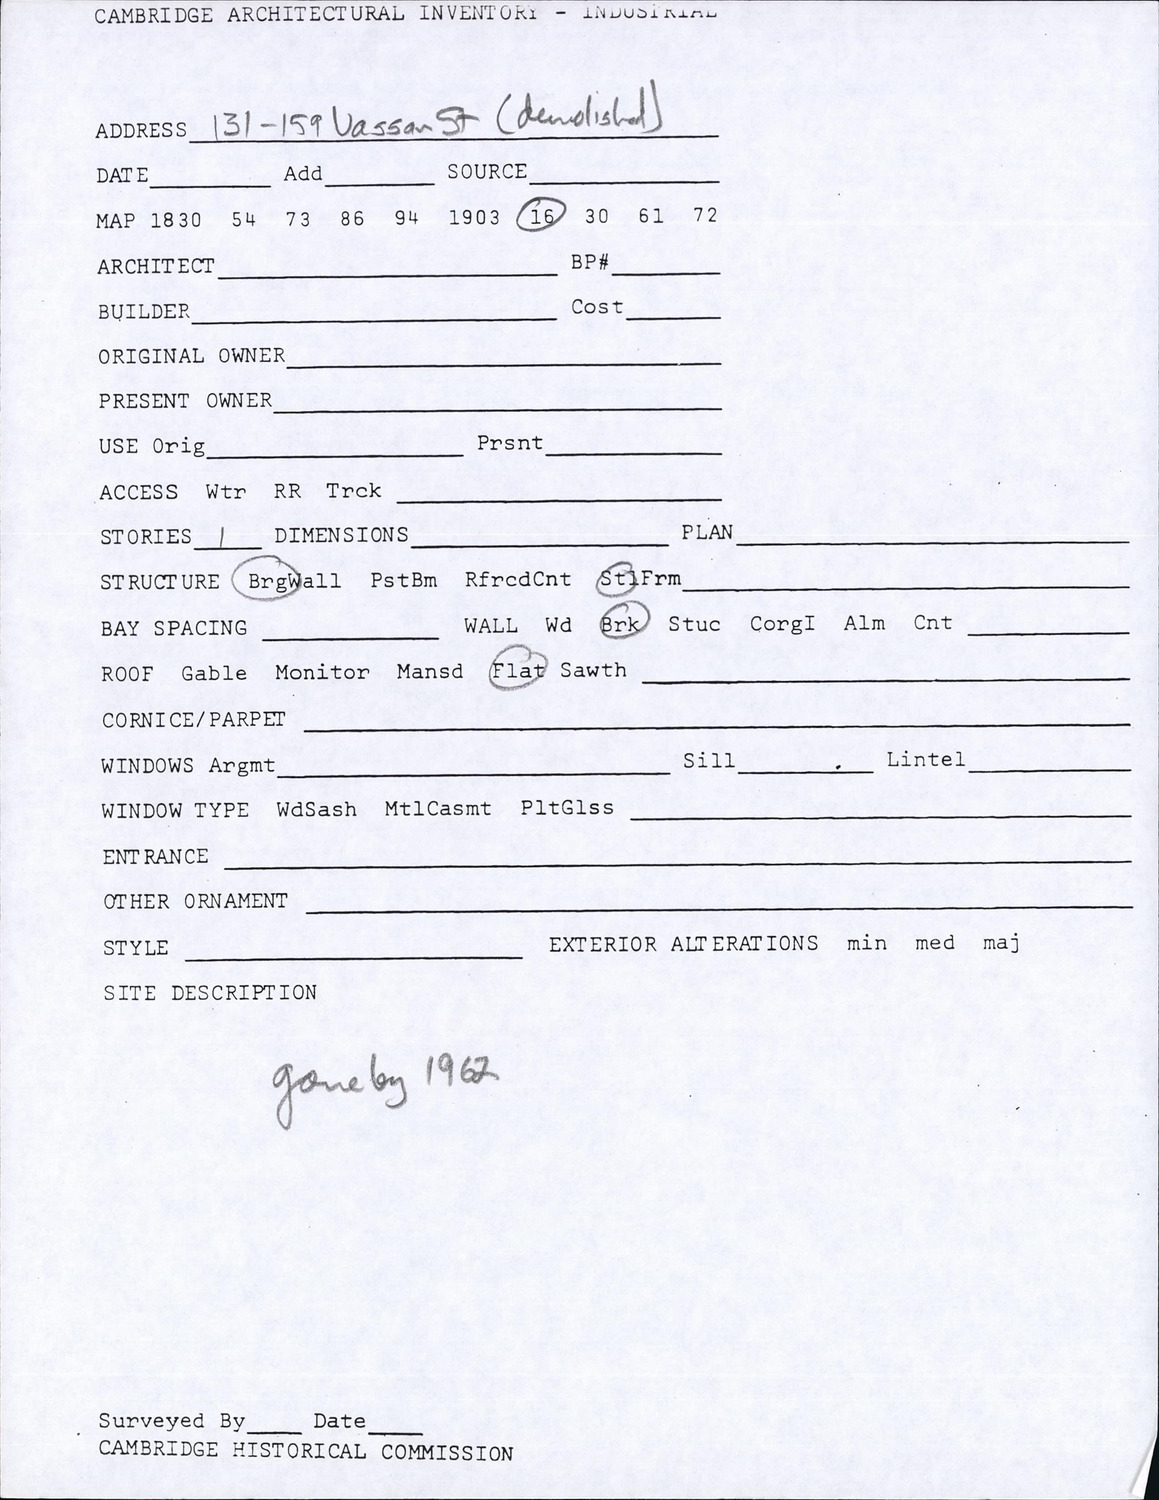 CAMBRIDGE ARCHITECTURAL INVENTORY - INDUSTRIAL
ADDRESS 131-159 Vassar St (demolished)
DATE Add SOURCE
MAP 1830 54 73 86 94 1903 16 30 61 72
ARCHITECT BP#
BUILDER Cost
ORIGINAL OWNER
PRESENT OWNER
USE Orig Prsnt
ACCESS Wtr RR Trck
STORIES 1 DIMENSIONS PLAN
STRUCTURE BrgWall PstBm RfrcdCnt StlFrm
BAY SPACING WALL Wd Brk Stuc CorgI Alm Cnt
ROOF Gable Monitor Mansd Flat Sawth
CORNICE/PARPET
WINDOWS Argmt Sill Lintel
WINDOW TYPE WdSash MtlCasmt PltGlss
ENTRANCE
OTHER ORNAMENT
STYLE EXTERIOR ALTERATIONS min med maj
SITE DESCRIPTION
gone by 1962
Surveyed By Date
CAMBRIDGE HISTORICAL COMMISSION